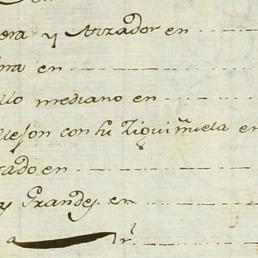 era y Arzador en
rra en
llo mediano en
lleson con su Ziguiñuela en
zado en
y Grandes en
a